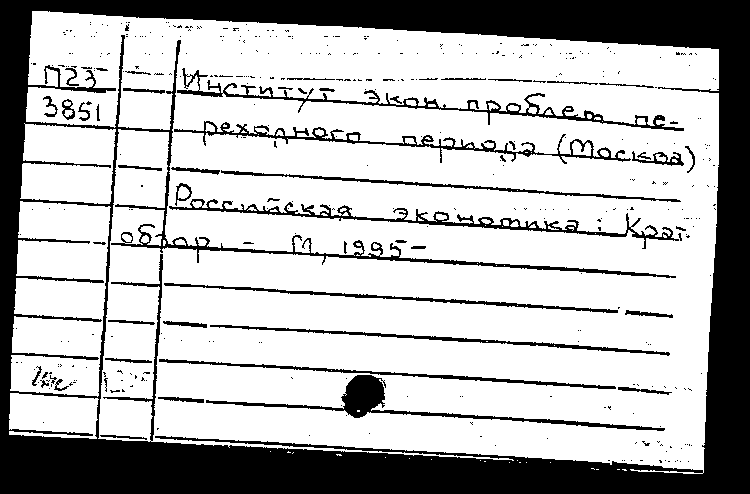 П23
3851
Институт экон. проблем пе-
реходного периода (Москва)
Российская экономика: Крат.
обзор. - М., 1995-